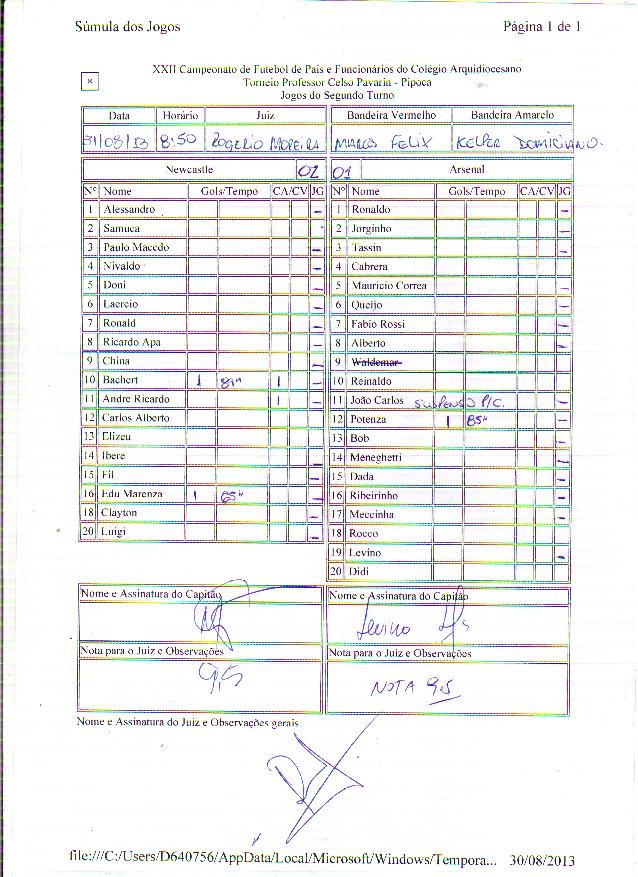 Súmula dos Jogos Página 1 de 1
XXII Campeonato de Futebol de Pais e Funcionários do Colégio Arquidiocesano
Torneio Professor Celso Pavarin - Pipoca
Jogos do Segundo Turno
Data Horário Juiz Bandeira Vermelho Bandeira Amarelo
31/08/13 8:50 ROGERIO MOREIRA MARCOS FELIX KELPER DOMICIANO.
Newcastle 02 01 Arsenal
Nº Nome Gols/Tempo CA/CV JG Nº Nome Gols/Tempo CA/CV JG
1 Alessandro - 1 Ronaldo -
2 Samuca 2 Jorginho -
3 Paulo Macedo - 3 Tassin -
4 Nivaldo - 4 Cabrera
5 Doni - 5 Mauricio Correa -
6 Laercio - 6 Queijo -
7 Ronald - 7 Fabio Rossi -
8 Ricardo Apa - 8 Alberto -
9 China - 9 Waldemar
10 Bachert 1 89" 1 - 10 Reinaldo
11 Andre Ricardo 1 - 11 João Carlos SUSPENSO P/C. -
12 Carlos Alberto 12 Potenza 1 85" -
13 Elizeu 13 Bob -
14 Ibere - 14 Meneghetti -
15 Fil - 15 Dada -
16 Edu Marenza 1 65" - 16 Ribeirinho -
18 Clayton - 17 Mecchinha -
20 Luigi - 18 Rocco -
19 Levino -
20 Didi
Nome e Assinatura do Capitão Nome e Assinatura do Capitão
Levino
Nota para o Juiz e Observações Nota para o Juiz e Observações
9,5 NOTA 9,5
Nome e Assinatura do Juiz e Observações gerais
file:///C:/Users/D640756/AppData/Local/Microsoft/Windows/Tempora... 30/08/2013